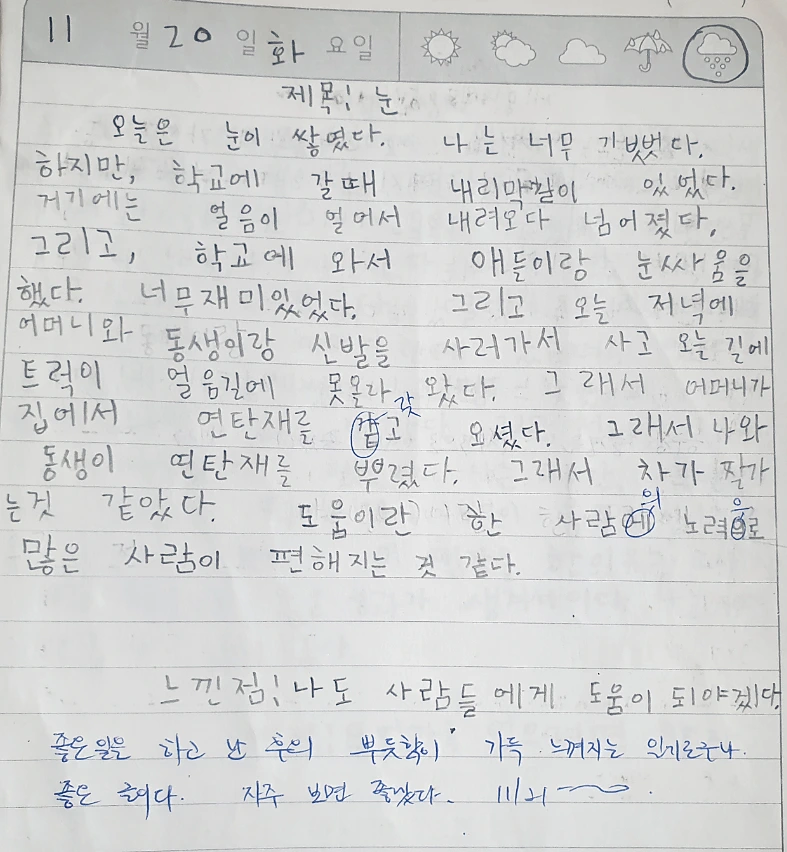 11 월 20 일 화 요일
제목: 눈
오늘은 눈이 쌓였다. 나는 너무 기뻤다.
하지만, 학교에 갈때 내리막길이 있었다.
거기에는 얼음이 얼어서 내려오다 넘어졌다,
그리고, 학교에 와서 애들이랑 눈싸움을
했다. 너무재미있었다. 그리고 오늘 저녁에
어머니와 동생이랑 신발을 사러가서 사고 오늘 길에
트럭이 얼음길에 못올라 왔다. 그래서 어머니가
갖
집에서 연탄재를 갔고 오셨다. 그래서 나와
동생이 연탄재를 뿌렸다. 그래서 차가 잘가
는것 같았다. 도움이란 한 사람에 노력으로
의 으
많은 사람이 편해지는 것 같다.
느낀점: 나도 사람들에게 도움이 되야겠다.
좋은일을 하고 난 후의 뿌듯함이 가득 느껴지는 일기로구나.
좋은 글이다. 자주 보면 좋겠다. 11/21